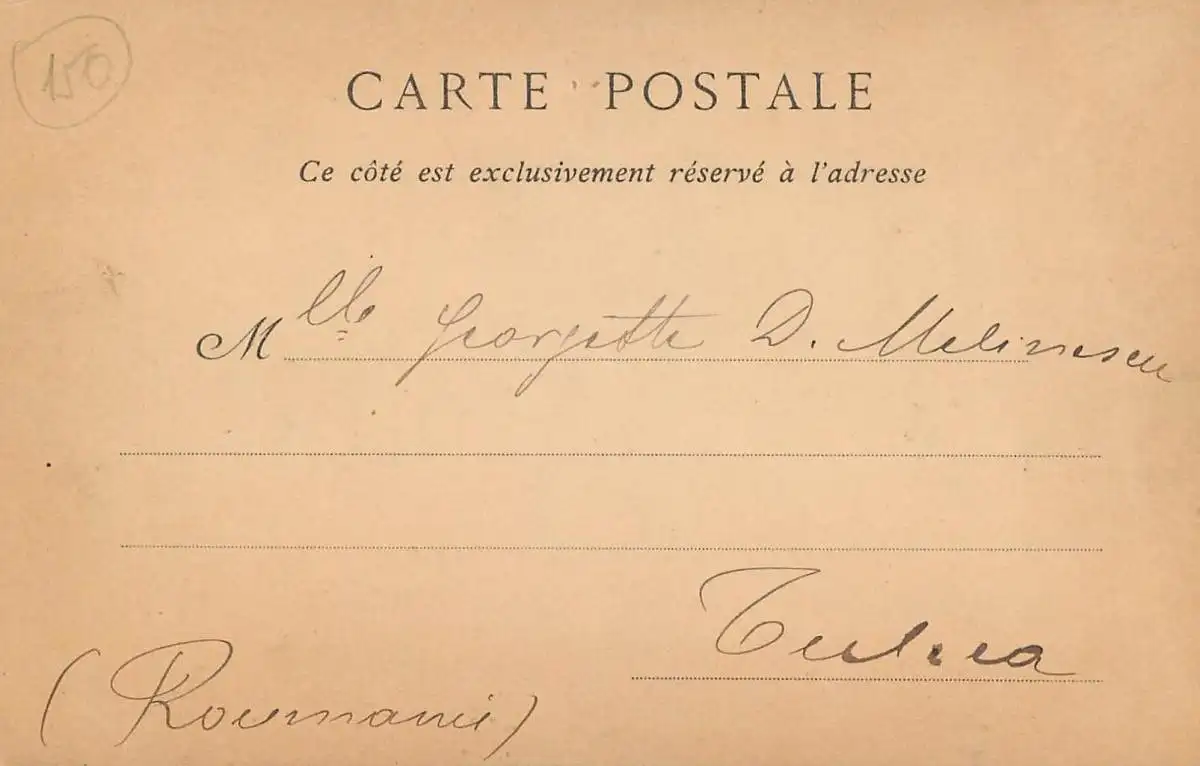 150
CARTE POSTALE
Ce côté est exclusivement réservé à l'adresse
Mlle Georgette D. Melinescu
Tulcea
(Roumanie)